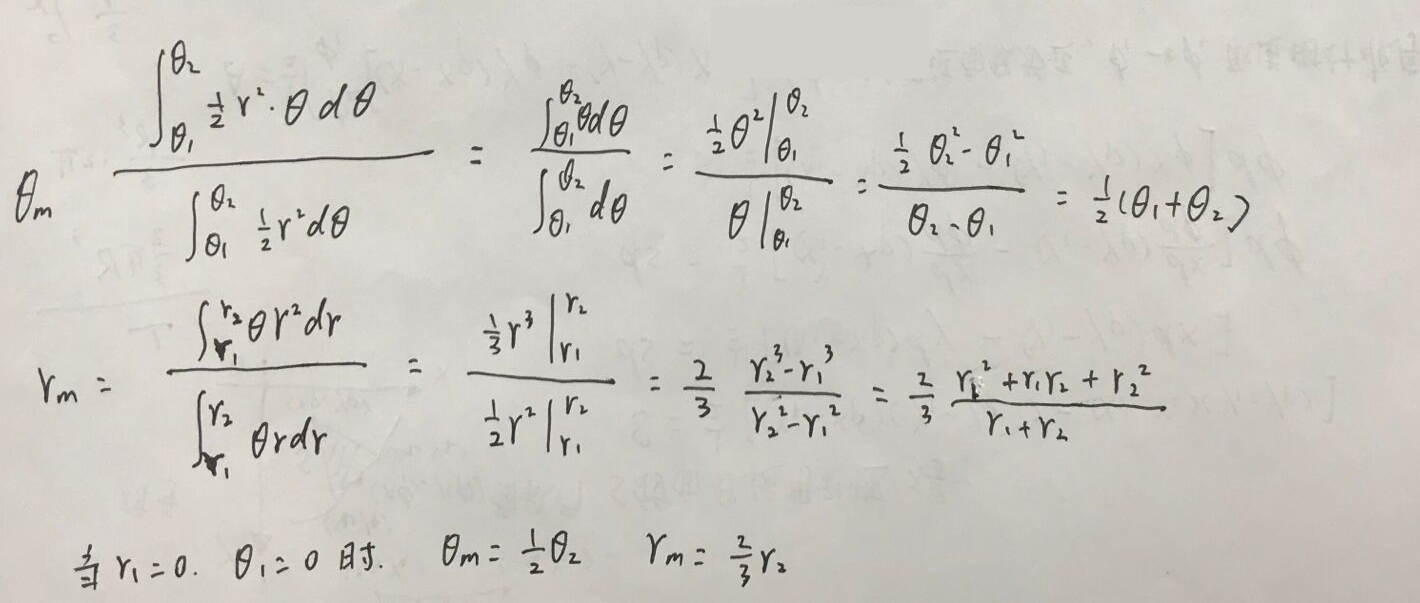 θₘ \frac{\int_{θ_1}^{θ_2} \frac{1}{2} r^2 · θ dθ}{\int_{θ_1}^{θ_2} \frac{1}{2} r^2 dθ} = \frac{\int_{θ_1}^{θ_2} θ dθ}{\int_{θ_1}^{θ_2} dθ} = \frac{\frac{1}{2} θ^2 |_{θ_1}^{θ_2}}{θ |_{θ_1}^{θ_2}} = \frac{\frac{1}{2} θ_2^2 - θ_1^2}{θ_2 - θ_1} = \frac{1}{2} (θ_1 + θ_2)
r_m = \frac{\int_{r_1}^{r_2} θ r^2 dr}{\int_{r_1}^{r_2} θ r dr} = \frac{\frac{1}{3} r^3 |_{r_1}^{r_2}}{\frac{1}{2} r^2 |_{r_1}^{r_2}} = \frac{2}{3} \frac{r_2^3 - r_1^3}{r_2^2 - r_1^2} = \frac{2}{3} \frac{r_1^2 + r_1 r_2 + r_2^2}{r_1 + r_2}
当 r_1 = 0. θ_1 = 0 时. θ_m = \frac{1}{2} θ_2 r_m = \frac{2}{3} r_2